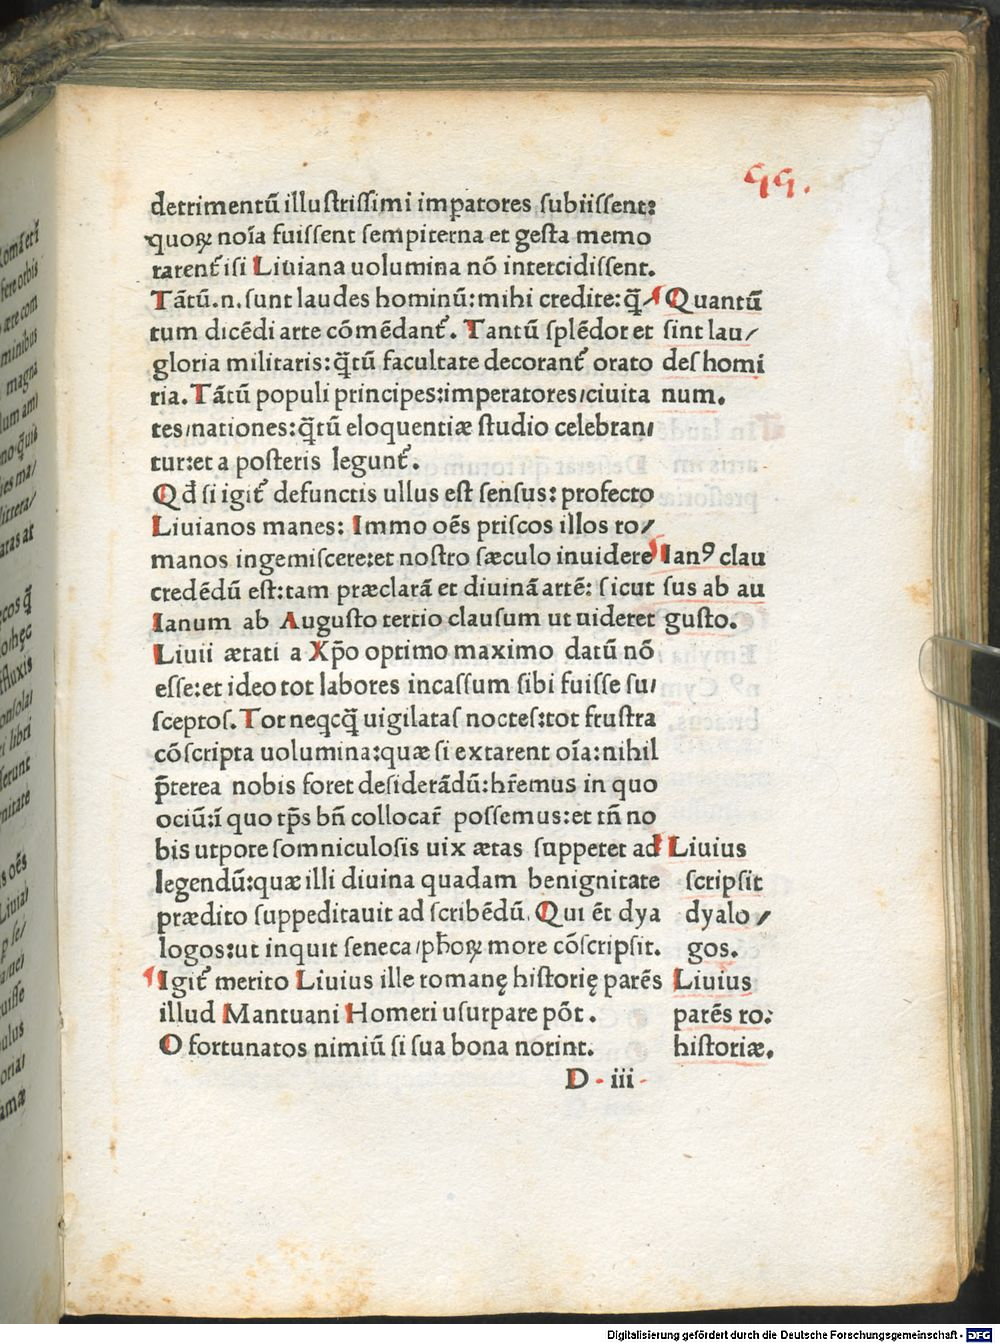 99.
detrimentū illuſtriſſimi imꝑatores ſubiiſſent:
quoꝝ noīa fuiſſent ſempiterna et geſta memo
rarent᷑ iſi Liuiana uolumina nō intercidiſſent.
Tātū.n. ſunt laudes hominū: mihi credite: q̄/
tum dicēdi arte cōmēdant᷑. Tantū ſplēdor et
gloria militaris: q̄tū facultate decorant᷑ orato
ria. Tātū populi principes: imperatores/ciuita
tes/nationes: q̄tū eloquentiæ ſtudio celebran/
tur: et a poſteris legunt᷑.
Qd̄ ſi igit᷑ defunctis ullus eſt ſenſus: profecto
Liuianos manes: Immo oēs priſcos illos ro/
manos ingemiſcere: et noſtro ſæculo inuidere
credēdū eſt: tam præclarā et diuinā artē: ſicut
Ianum ab Auguſto tertio clauſum ut uideret
Liuii ætati a Xp̄o optimo maximo datū nō
eſſe: et ideo tot labores incaſſum ſibi fuiſſe ſu/
ſceptoſ. Tot neqcq̄ uigilataſ nocteſ: tot fruſtra
cōſcripta uolumina: quæ ſi extarent oīa: nihil
p̄terea nobis foret deſiderādū: hr̄emus in quo
ociū: ī quo tp̄s bn̄ collocar̄ poſſemus: et tn̄ no
bis utpote ſomniculoſis uix ætas ſuppetet ad
legendū: quæ illi diuina quadam benignitate
prædito ſuppeditauit ad ſcribēdū. Qui ēt dya
logos: ut inquit ſeneca/ph̄oꝝ more cōſcripſit.
Igit᷑ merito Liuius ille romanę hiſtorię parēs
illud Mantuani Homeri uſurpare pōt.
O fortunatos nimiū ſi ſua bona norint.
D iii
Quantū
ſint lau/
deſ homi
num.
Ianꝰ clau
ſus ab au
guſto.
Liuius
ſcripſit
dyalo/
gos.
Liuius
parēs ro:
hiſtoriæ.
Digitalisierung gefördert durch die Deutsche Forschungsgemeinschaft - DFG